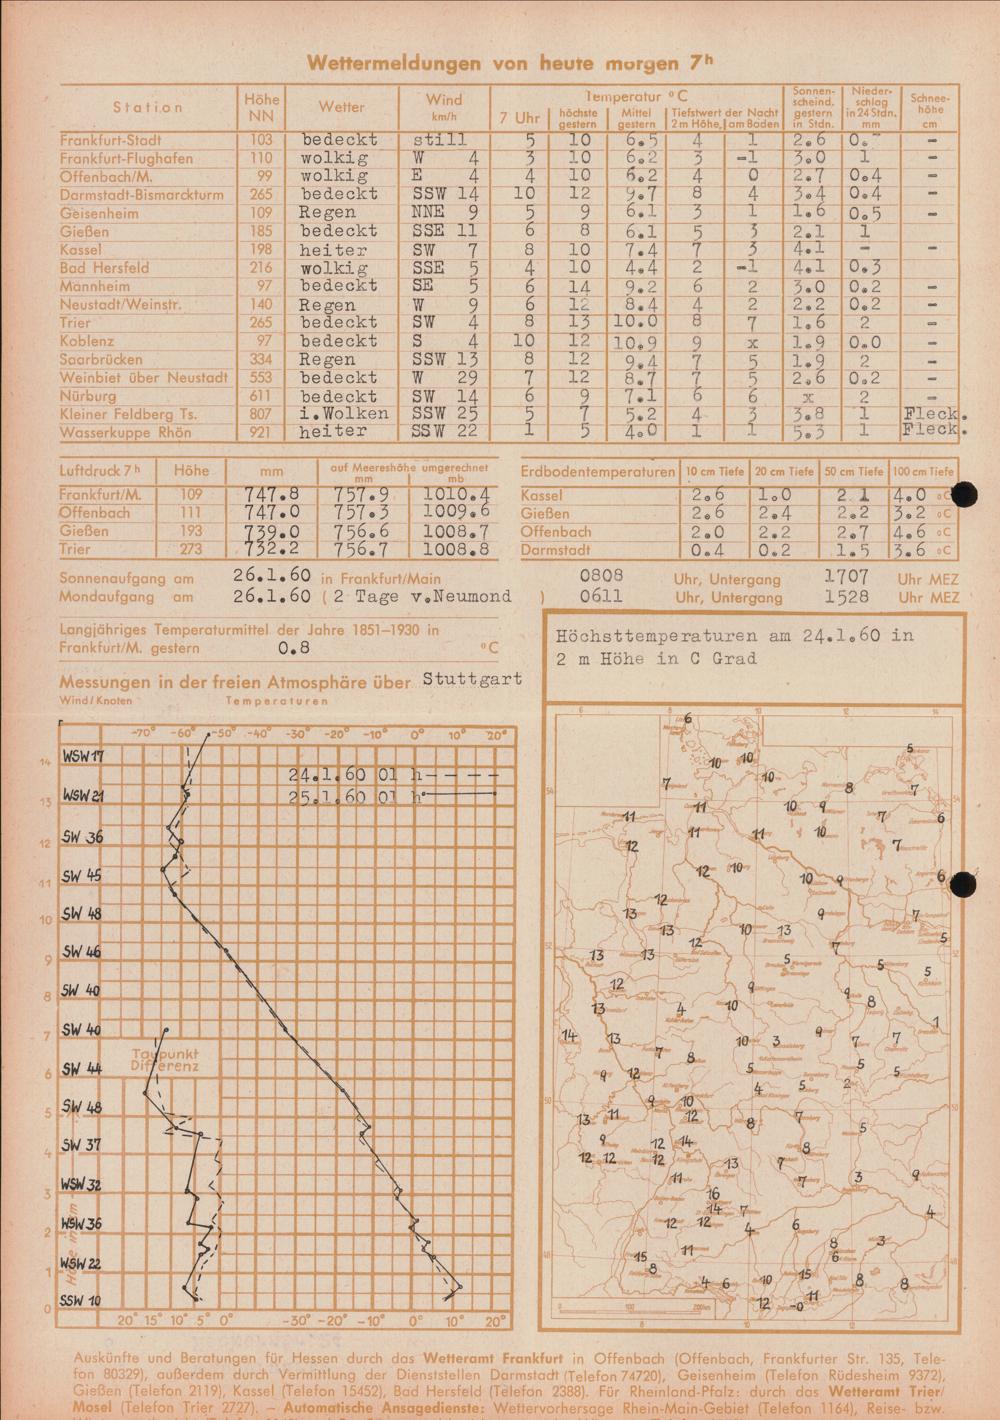 Wettermeldungen von heute morgen 7h
Station Höhe NN Wetter Wind km/h Temperatur °C Sonnen-scheind. gestern in Stdn. Nieder-schlag in 24 Stdn. mm Schnee-höhe cm
7 Uhr höchste gestern Mittel gestern Tiefstwert der Nacht 2 m Höhe, am Boden
Frankfurt-Stadt 103 bedeckt still 5 10 6.5 4 1 2.6 -
Frankfurt-Flughafen 110 wolkig W 4 3 10 6.2 3 -1 3.0 1 -
Offenbach/M. 99 wolkig E 4 4 10 6.2 4 0 2.7 0.4 -
Darmstadt-Bismarckturm 265 bedeckt SSW 14 10 12 9.7 8 4 3.4 0.4 -
Geisenheim 109 Regen NNE 9 5 9 6.1 3 1 1.6 0.5 -
Gießen 185 bedeckt SSE 11 6 8 6.1 5 3 2.1 1
Kassel 198 heiter SW 7 8 10 7.4 7 3 4.1 - -
Bad Hersfeld 216 wolkig SSE 5 4 10 4.4 2 -1 4.1 0.3
Mannheim 97 bedeckt SE 5 6 14 9.2 6 2 3.0 0.2 -
Neustadt/Weinstr. 140 Regen W 9 6 12 8.4 4 2 2.2 0.2 -
Trier 265 bedeckt SW 4 8 13 10.0 8 7 1.6 2 -
Koblenz 97 bedeckt S 4 10 12 10.9 9 x 1.9 0.0 -
Saarbrücken 334 Regen SSW 13 8 12 9.4 7 5 1.9 2 -
Weinbiet über Neustadt 553 bedeckt W 29 7 12 8.7 7 5 2.6 0.2 -
Nürburg 611 bedeckt SW 14 6 9 7.1 6 6 x 2 -
Kleiner Feldberg Ts. 807 i.Wolken SSW 25 5 7 5.2 4 3 3.8 1 Fleck.
Wasserkuppe Rhön 921 heiter SSW 22 1 5 4.0 1 1 5.3 1 Fleck.
Luftdruck 7h Höhe mm auf Meereshöhe umgerechnet mm mb
Frankfurt/M. 109 747.8 757.9 1010.4
Offenbach 111 747.0 757.3 1009.6
Gießen 193 739.0 756.6 1008.7
Trier 273 732.2 756.7 1008.8
Erdbodentemperaturen 10 cm Tiefe 20 cm Tiefe 50 cm Tiefe 100 cm Tiefe
Kassel 2.6 1.0 2.1 4.0 °C
Gießen 2.6 2.4 2.2 3.2 °C
Offenbach 2.0 2.2 2.7 4.6 °C
Darmstadt 0.4 0.2 1.5 3.6 °C
Sonnenaufgang am 26.1.60 in Frankfurt/Main 0808 Uhr, Untergang 1707 Uhr MEZ
Mondaufgang am 26.1.60 ( 2 Tage v.Neumond ) 0611 Uhr, Untergang 1528 Uhr MEZ
Langjähriges Temperaturmittel der Jahre 1851–1930 in
Frankfurt/M. gestern 0.8 °C
Messungen in der freien Atmosphäre über Stuttgart
Wind/Knoten Temperaturen
-70° -60° -50° -40° -30° -20° -10° 0° 10° 20°
24.1.60 01 h
25.1.60 01 h
WSW 17
14
WSW 21
13
SW 36
12
SW 45
11
SW 48
10
SW 46
9
SW 40
8
SW 40
7
Taupunkt Differenz
SW 44
6
SW 48
5
SW 37
4
WSW 32
3
WSW 36
2
WSW 22
1
SSW 10
0
Höhe in km
20° 15° 10° 5° 0° -30° -20° -10° 0° 10° 20°
Höchsttemperaturen am 24.1.60 in
2 m Höhe in C Grad
6
10 10 5
7 10 8 7
11 11 10 9 7 6
12 11 11 10 7
12 10 10 9 6
12 13 9 7
13 12 10 13 7 5
13 13 5 5 5
12 9 9 8
13 4 10 1
14 13 10 3 9 7 7
7 8 5 5 5
9 12 4 5 2
9 10 12
13 11 8 7 5
9 12 14 8
12 12 12 13 7 3 9
11 16 7
14 7 4
12 12 4 6
15 11 8 6 3
8 4 6 10 15 8 8
12 -0 11
0 100 200km
Auskünfte und Beratungen für Hessen durch das Wetteramt Frankfurt in Offenbach (Offenbach, Frankfurter Str. 135, Tele-
fon 80329), außerdem durch Vermittlung der Dienststellen Darmstadt (Telefon 74720), Geisenheim (Telefon Rüdesheim 9372),
Gießen (Telefon 2119), Kassel (Telefon 15452), Bad Hersfeld (Telefon 2388). Für Rheinland-Pfalz: durch das Wetteramt Trier/
Mosel (Telefon Trier 2727). – Automatische Ansagedienste: Wettervorhersage Rhein-Main-Gebiet (Telefon 1164), Reise- bzw.